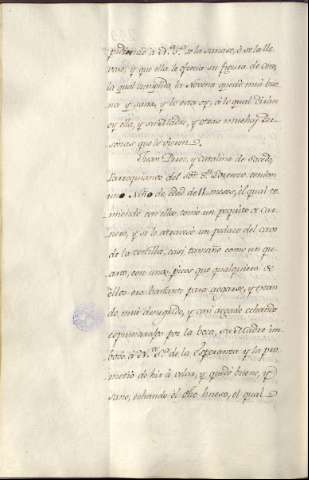 pidiendo à N.ª S.ª se la sanase, ò se la lle
vase, y que ella le ofrecia su figura de cera,
la qual cumplida la Novena quedò mui bue
na y sana, y lo esta oy, à lo qual dixeron
oy ella, y su Madre, y otras muchas Per
sonas que lo vieron.
Juan Diez, y Catalina de Salcedo,
Parroquianos del S.ᵒʳ S.ⁿ Lorenzo, tenian
un Niño de edad de 11 meses, el qual co
miendo con ellos, tomò un poquito de Car
nero, y se le atravesò un pedazo del caxo
de la costilla, casi tamaño como un qu
arto, con unos picos que qualquiera de
ellos era bastante para aogarse, y estan
do mui denegrido, y casi aogado echando
espumarajos por la boca, su Madre in
bocò à N.ª S.ª de la Esperanza y la pro
metiò de hir à velar, y quedò bueno, y
sano, echando el dho hueso, el qual